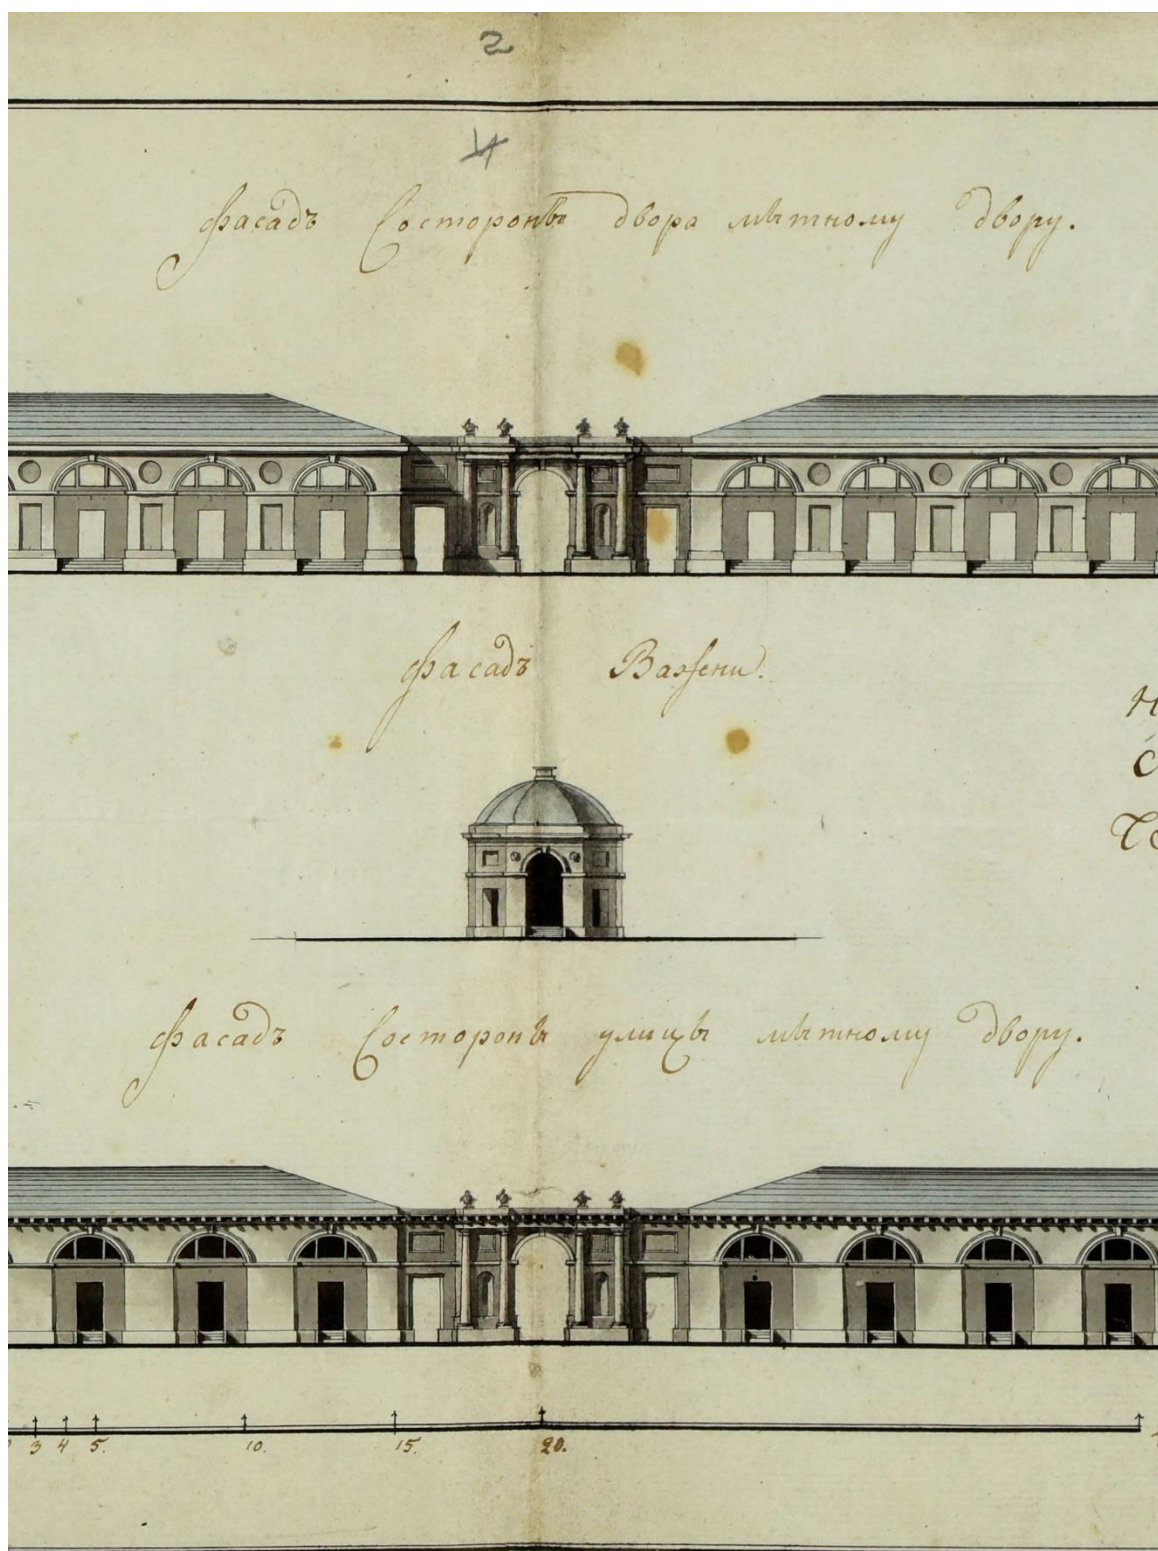 2
4
Фасадъ Состороны двора мытному двору.
Фасадъ Важени.
Фасадъ Состороны улицы мытному двору.
3 4 5. 10. 15. 20.